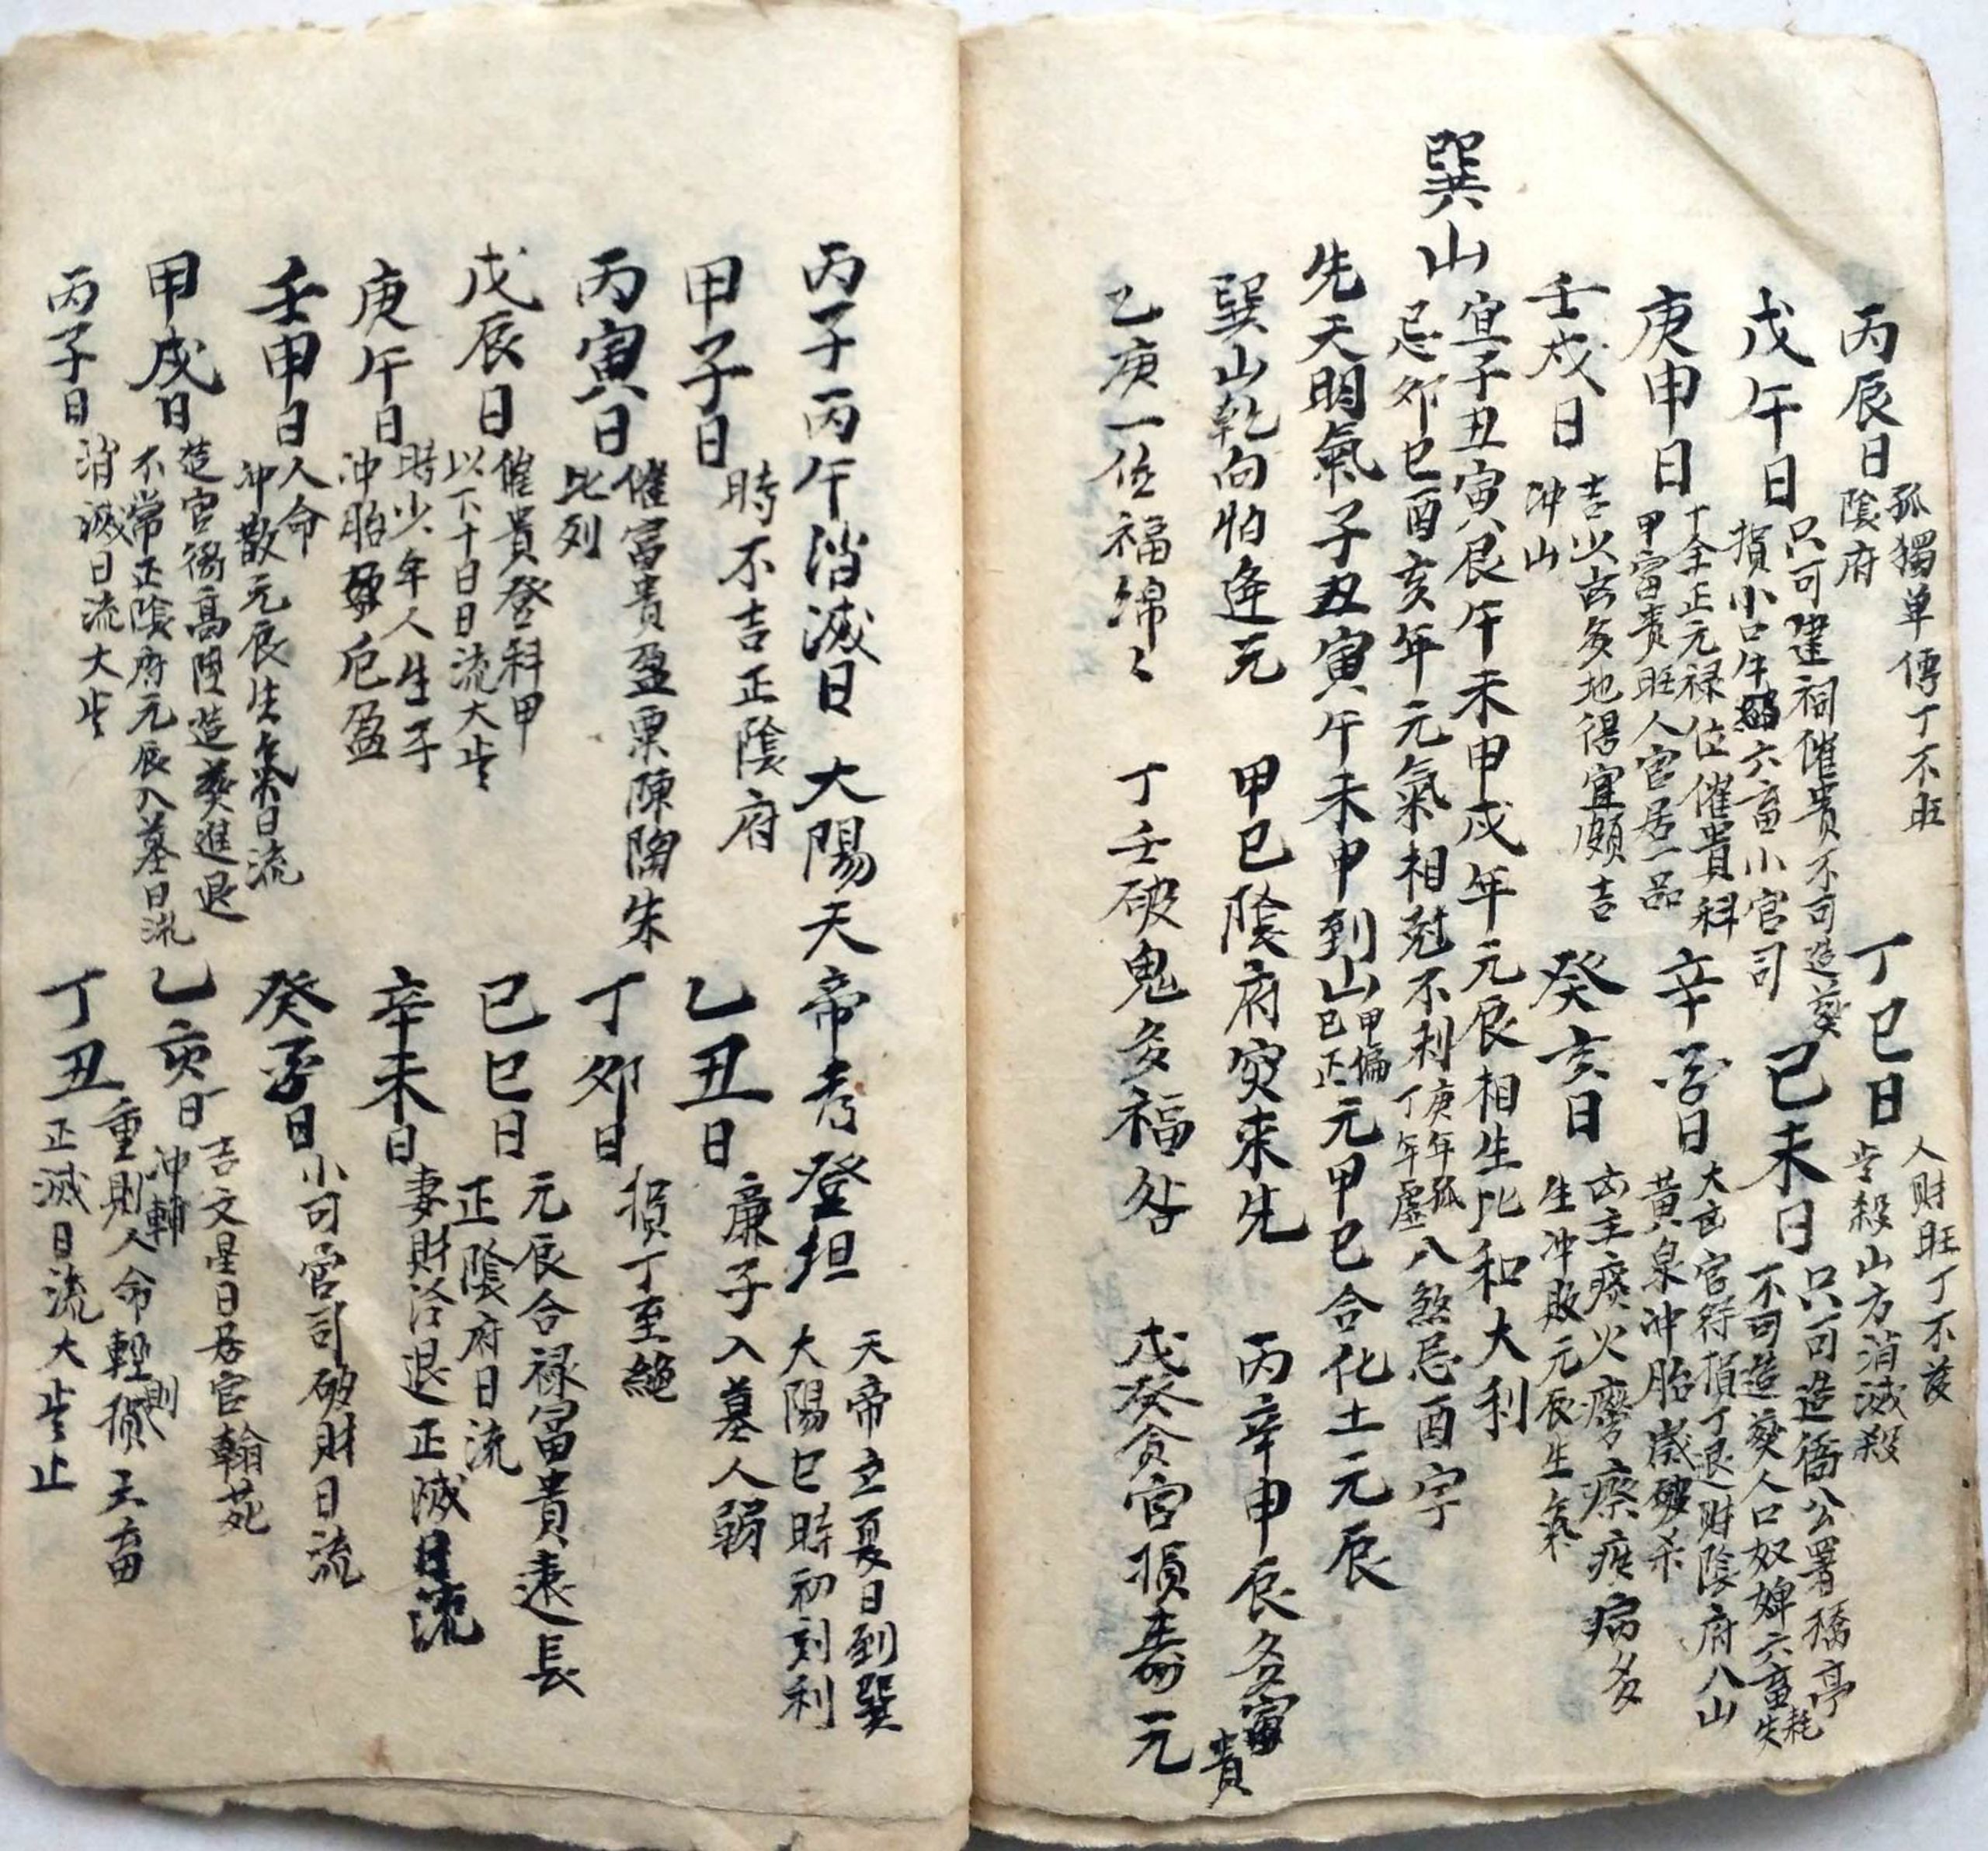 丙辰日
孤獨单傳丁不旺
陰府
丁巳日
人財旺丁不發
殺山方消滅殺
戊午日
只可建祠催貴不可造葵
損小口牛六畜小官司
己未日
只可造僑公署橋亭
不可造葵人口奴婢六畜失耗
庚申日
丁全正元禄位催貴科
甲富貴旺人官居一品
辛酉日
大凶官符損丁退財陰府八山
黄泉冲胎歲破杀
壬戌日
吉少凶多地得宜頗吉
冲山
癸亥日
凶主瘼火瘮瘵疾病多
生冲敗元辰生氣
巽山
宜子丑寅艮午未申戌年元辰相生比和大利
忌卯巳酉亥年元氣相尅不利
庚年孤
丁年虛
八煞忌酉字
先天明氣子丑寅午未申到山
甲偏
巳正
元甲巳合化土元辰
巽山乾向怕逢元
甲巳陰府突来先
丙辛申辰多富貴
乙庚一位福綿々
丁壬破鬼多福咎
戊癸贪官損壽元
丙子丙午消滅日
大陽天帝考登担
天帝立夏日到巽
大陽巳時初刻利
甲子日
時不吉正陰府
乙丑日
廉子入墓人弱
丙寅日
催富貴盈粟陳陶朱
比列
丁卯日
損丁至絶
戊辰日
催貴登科甲
以下十日日流大步
已巳日
元辰合禄富貴遠長
正陰府日流
庚午日
時少年人生子
冲胎 盈
辛未日
妻財洛退正滅日流
壬申日
人命
冲散元辰生氣日流
癸酉日
小可官司破財日流
甲戌日
楚官衙高陞造葵進退
不常正陰府元辰入墓日流
乙亥日
吉文星日居官翰苑
冲輔
丙子日
消滅日流大步
丁丑
重則人命輕則損玉畜
正滅日流大步止